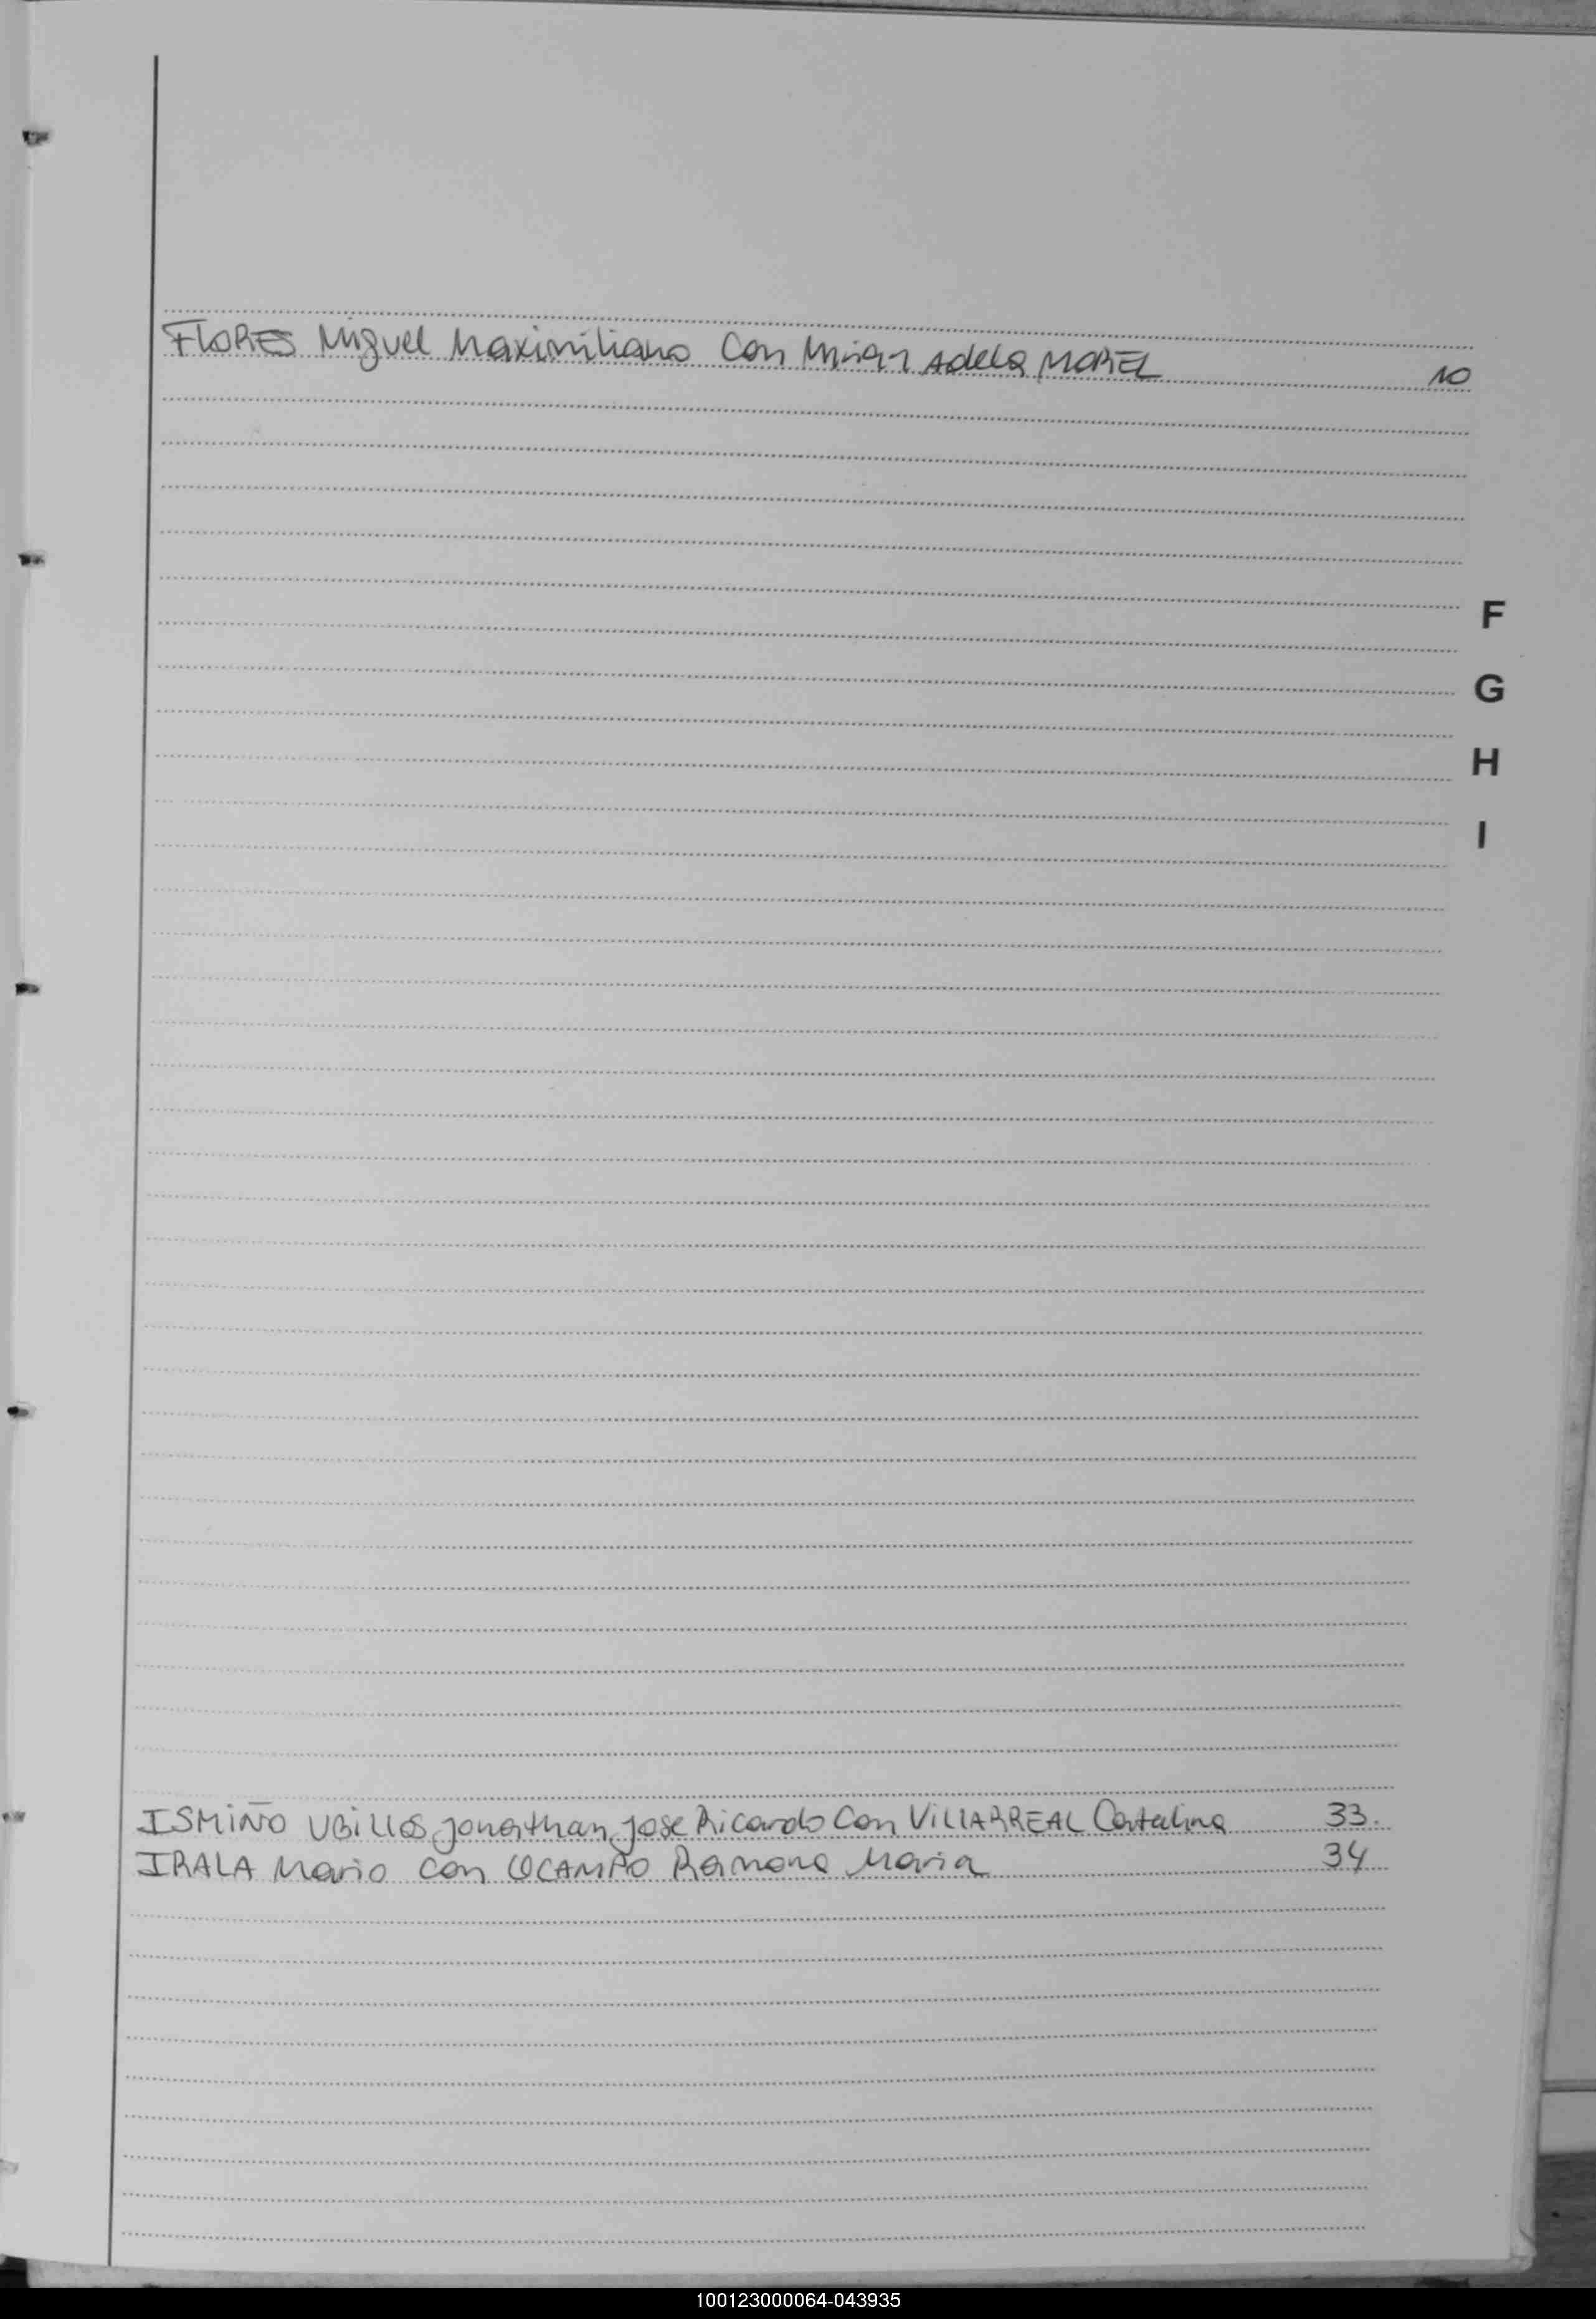 FLORES Miguel Maximiliano Con Mirian Adela MOREL 10
F
G
H
I
ISMIÑO UBILLOS, Jonathan, Jose Ricardo Con VILLARREAL Catalina 33.
IRALA Mario con OCAMPO Ramona Maria 34
100123000064-043935